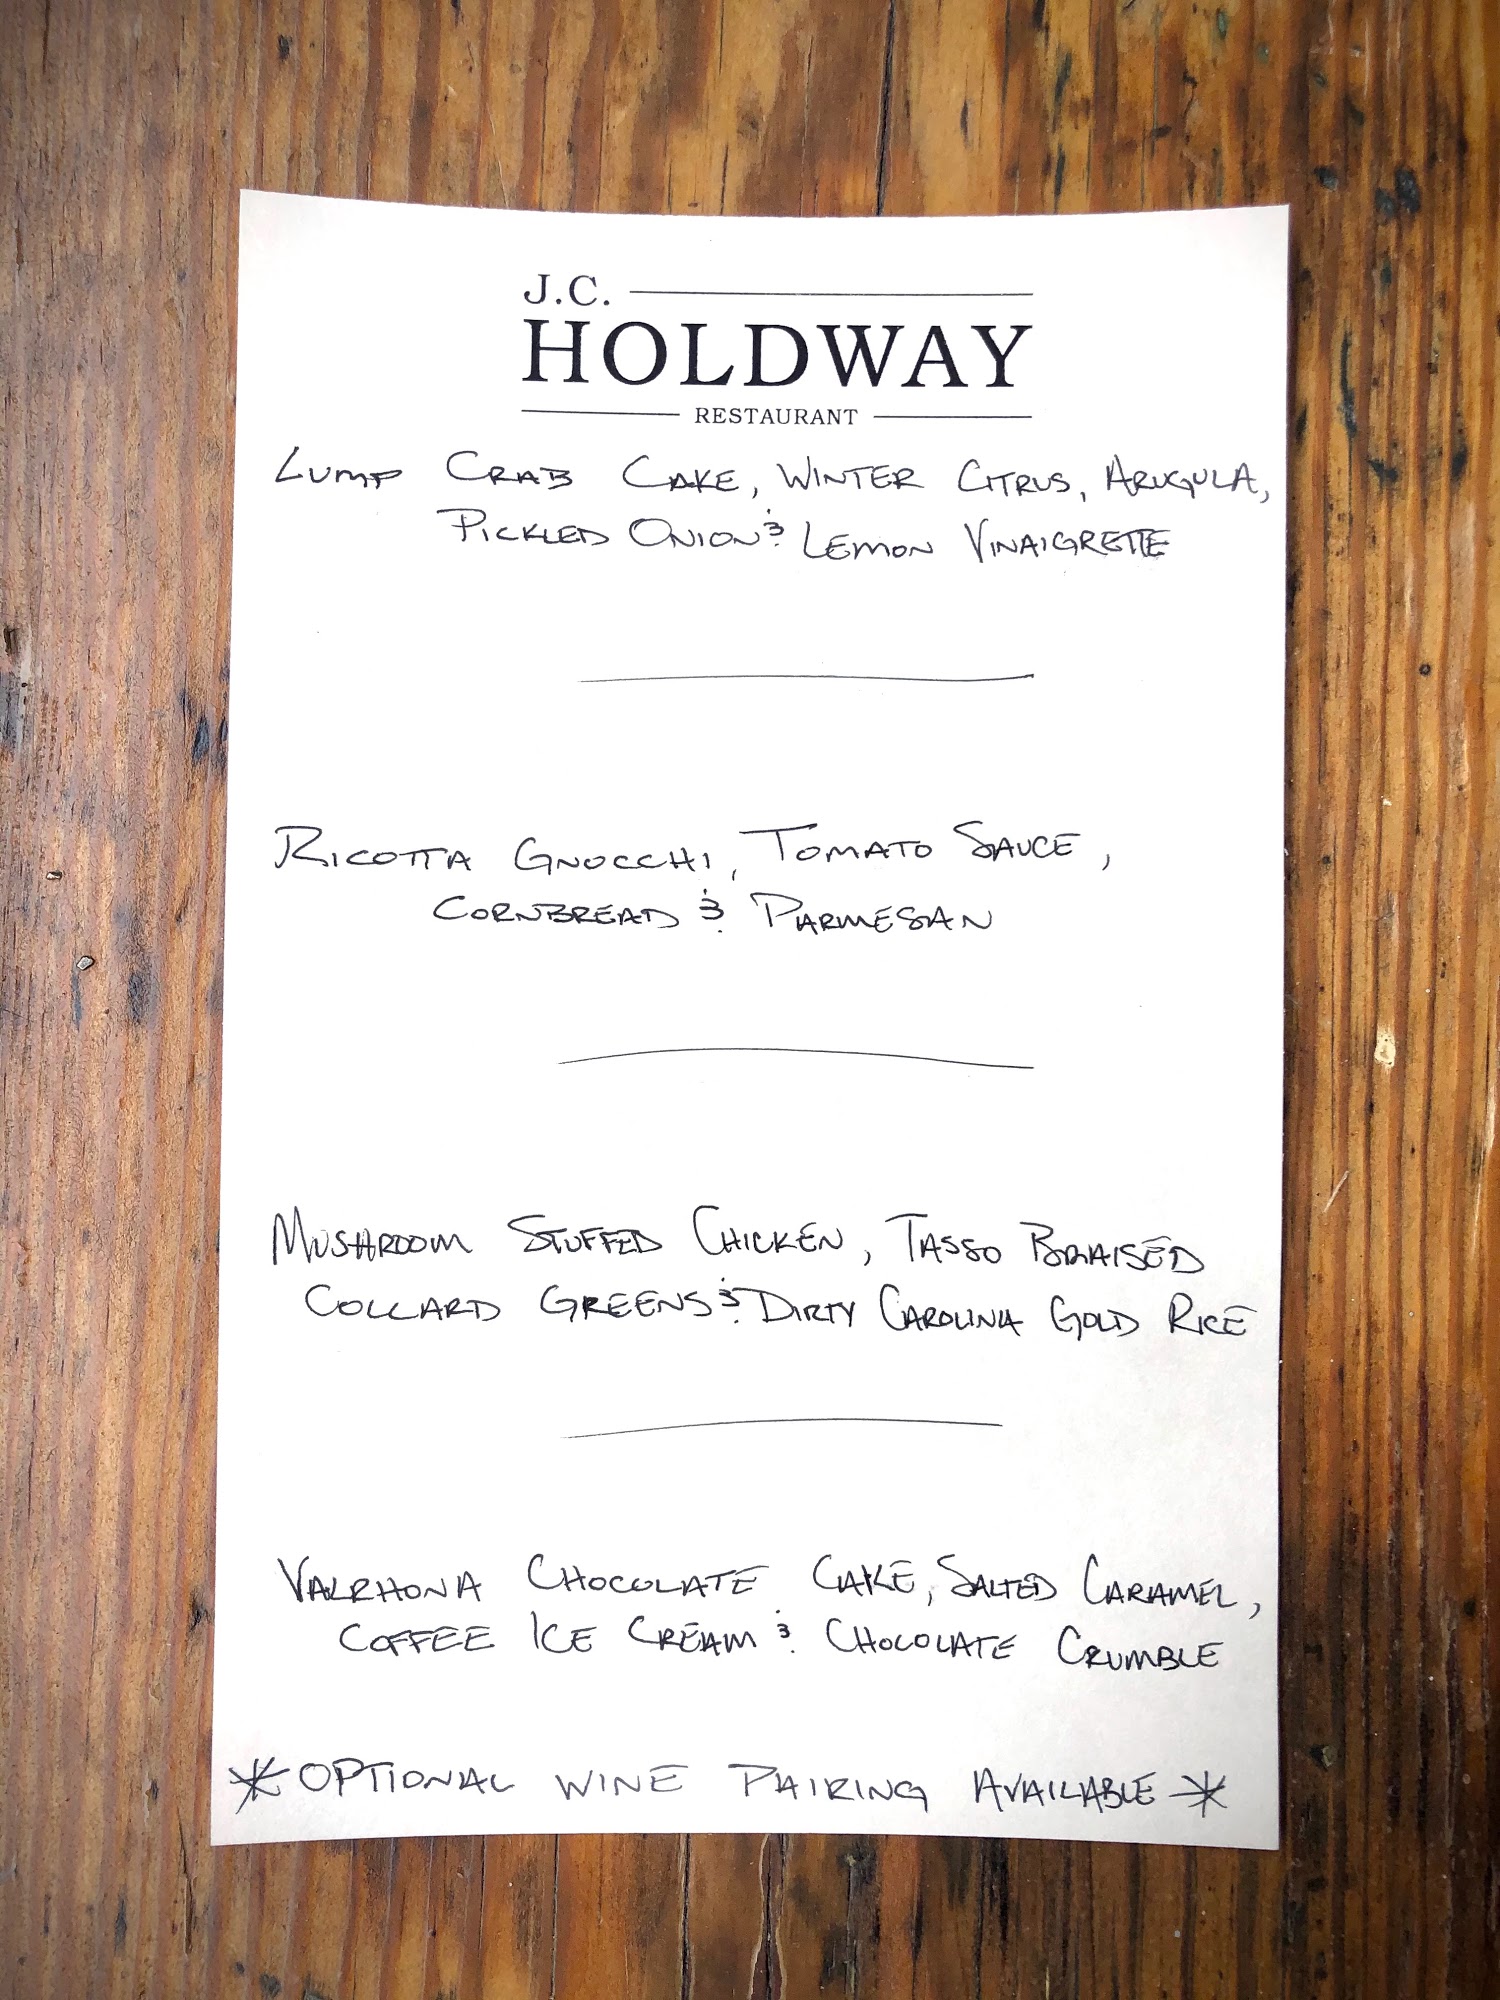 J.C.
HOLDWAY
RESTAURANT
LUMP CRAB CAKE, WINTER CITRUS, ARUGULA,
PICKLED ONION & LEMON VINAIGRETTE
RICOTTA GNOCCHI, TOMATO SAUCE,
CORNBREAD & PARMESAN
MUSHROOM STUFFED CHICKEN, TASSO BRAISED
COLLARD GREENS & DIRTY CAROLINA GOLD RICE
VALRHONA CHOCOLATE CAKE, SALTED CARAMEL,
COFFEE ICE CREAM & CHOCOLATE CRUMBLE
*OPTIONAL WINE PAIRING AVAILABLE*